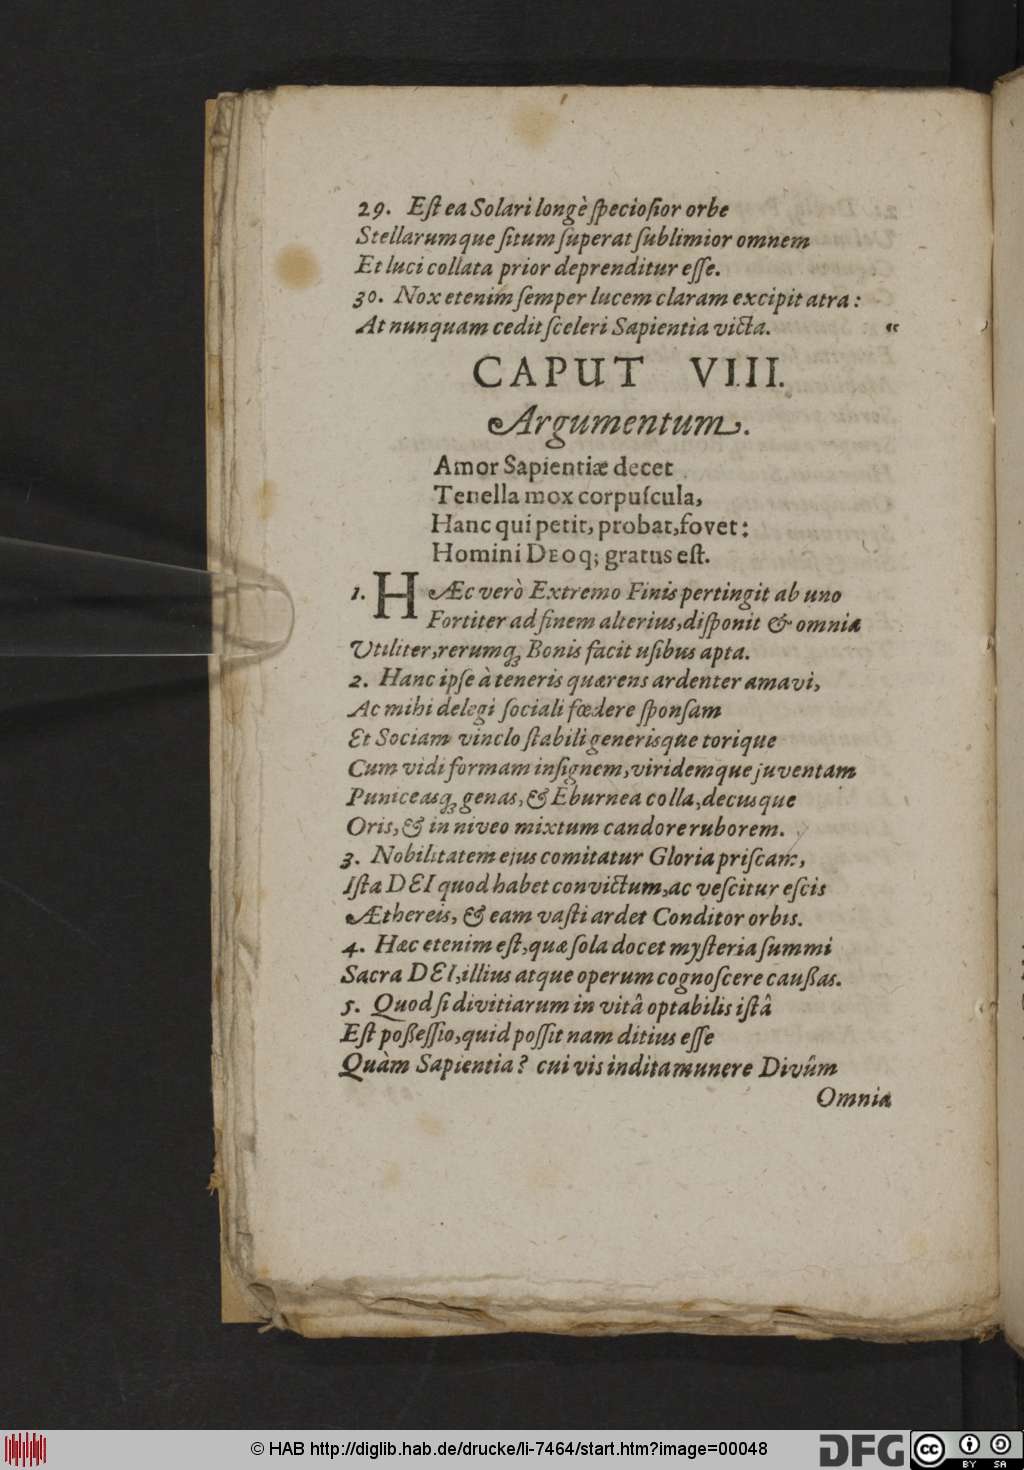 29. Eſt ea Solari longè ſpecioſior orbe
Stellarumque ſitum ſuperat ſublimior omnem
Et luci collata prior deprenditur eſſe.
30. Nox etenim ſemper lucem claram excipit atra:
At nunquam cedit ſceleri Sapientia victa. “
CAPUT VIII.
Argumentum.
Amor Sapientiæ decet
Tenella mox corpuſcula,
Hanc qui petit, probat, fovet:
Homini DEOq; gratus eſt.
1. HÆc verò Extremo Finis pertingit ab uno
Fortiter ad finem alterius, diſponit & omnia
Utiliter, rerumq; Bonis facit uſibus apta.
2. Hanc ipſe à teneris quærens ardenter amavi,
Ac mihi delegi ſociali fœdere ſponſam
Et Sociam vinclo ſtabili generisque torique
Cum vidi formam inſignem, viridemque juventam
Puniceasq; genas, & Eburnea colla, decusque
Oris, & in niveo mixtum candore ruborem.
3. Nobilitatem ejus comitatur Gloria priſcam,
Iſta DEI quod habet convictum, ac veſcitur eſcis
Æthereis, & eam vaſti ardet Conditor orbis.
4. Hæc etenim eſt, quæ ſola docet myſteria ſummi
Sacra DEI, illius atque operum cognoſcere caußas.
5. Quod ſi divitiarum in vitâ optabilis iſtâ
Eſt poßeſſio, quid poſſit nam ditius eſſe
Quàm Sapientia? cui vis indita munere Divûm
Omnia
© HAB http://diglib.hab.de/drucke/li-7464/start.htm?image=00048
DFG
cc
BY SA